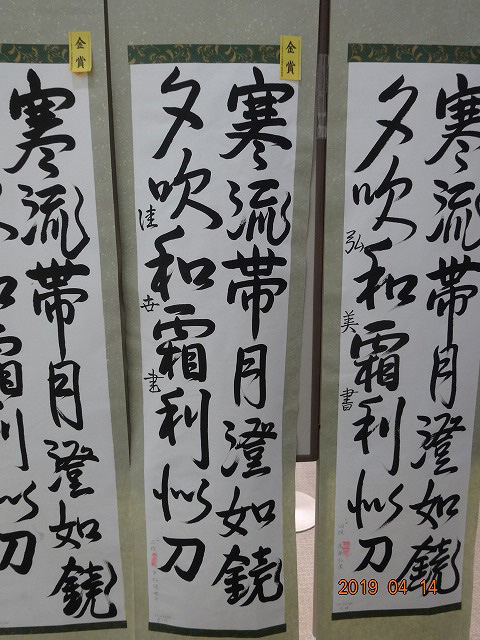 寒流帯月澄如鏡
夕吹和霜利似刀
弘美書
金賞
寒流帯月澄如鏡
夕吹和霜利似刀
佳世書
金賞
寒流帯月澄如鏡
和霜利似刀
2019 04 14